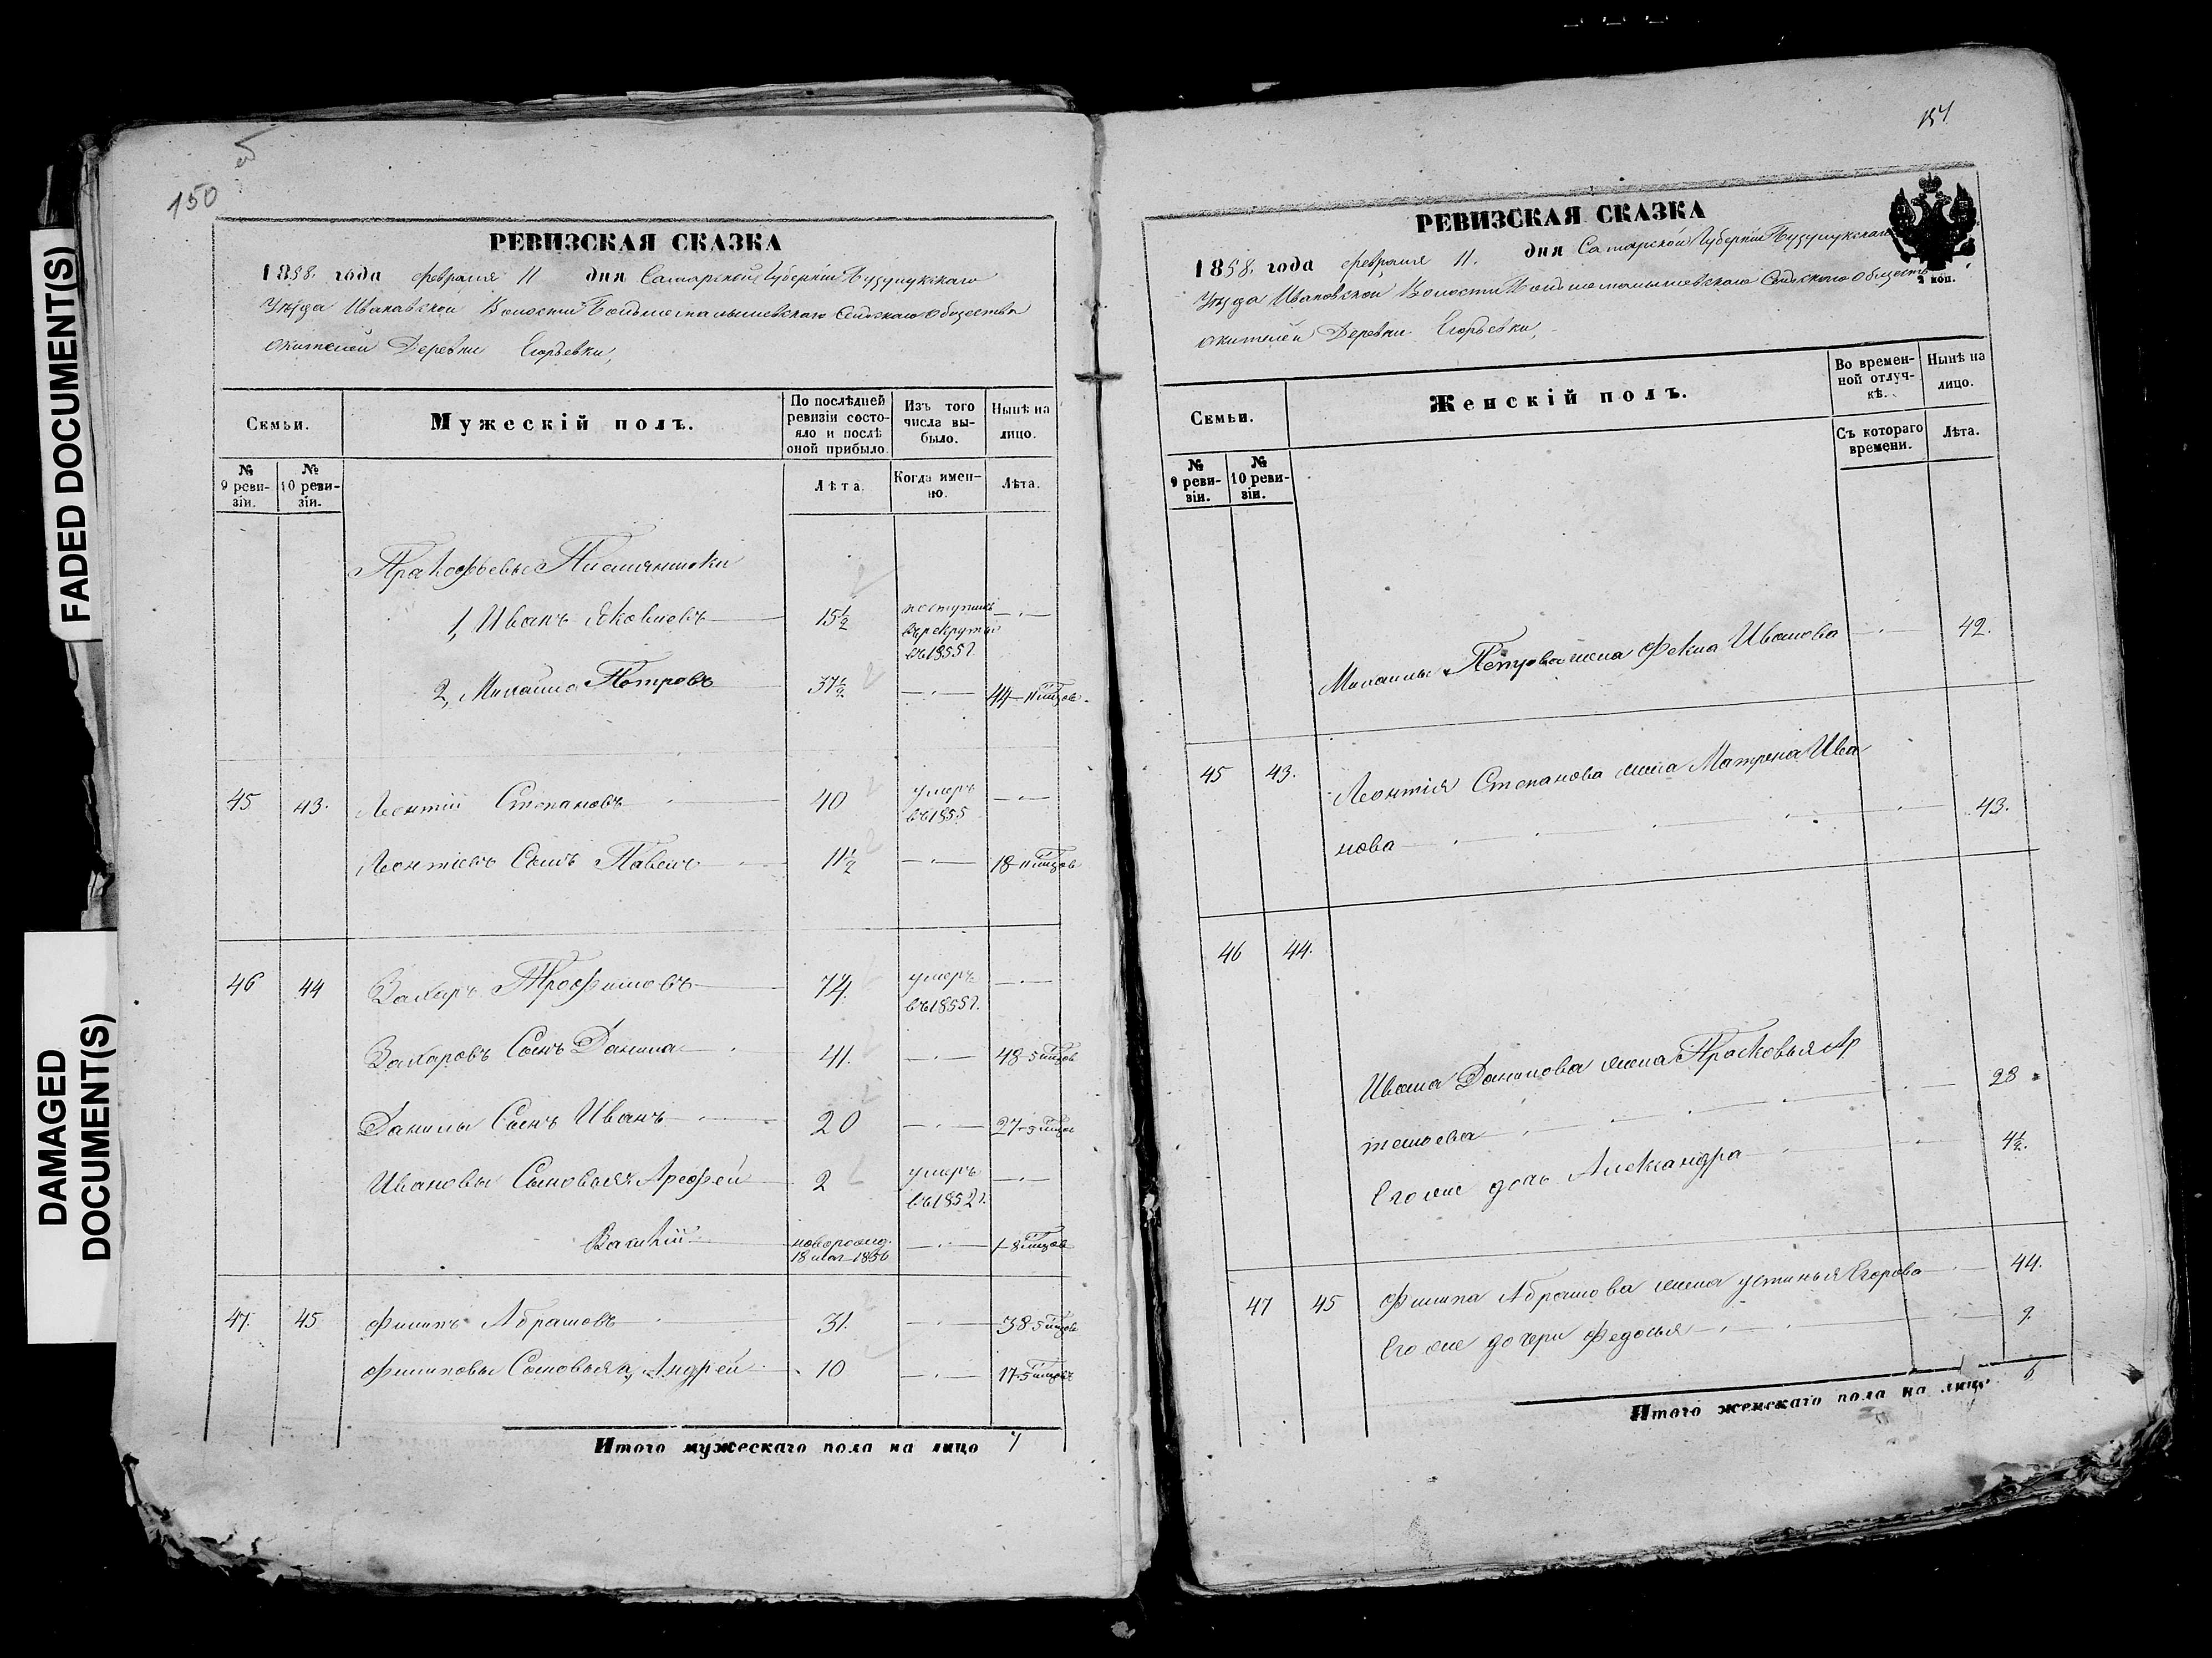 FADED DOCUMENT(S)
DAMAGED
DOCUMENT(S)
150
РЕВИЗСКАЯ СКАЗКА
1858. года февраля 11 дня Самарской Губерніи Бузулукскаго
Уѣзда Ивановской Волости Большемалышевскаго Сельскаго Общества
жителей Деревни Егорьевки,
Семьи.
Мужескій полъ.
По послѣдней ревизіи состояло и послѣ оной прибыло.
Изъ того числа выбыло.
Нынѣ на лицо.
№ 9 ревизіи.
№ 10 ревизіи.
Лѣта.
Когда именно.
Лѣта.
Пракофьевы Племянники
1, Иванъ Яковлевъ 15½ поступилъ въ рекруты въ 1855 г
2, Михайла Петровъ 37½ 44-11 мцов
45 43. Леонтій Степановъ 40 умеръ въ 1855
Леонтіевъ Сынъ Павелъ 11½ 18-11 мцов
46 44 Захаръ Трофимовъ 74. умеръ въ 1855 г.
Захаровъ Сынъ Данила 41. 48-5 мцов
Данилы Сынъ Иванъ 20 27-5 мцов
Ивановы Сыновья Арефей 2 умеръ въ 1852 г.
новорожд. 18 1856 1-8 мцов
47. 45 Филипъ Абрамовъ 31. 38-5 мцов
Филиповы Сыновья а, Андрей 10 17-5 мцовъ
Итого мужескаго пола на лицо 7
РЕВИЗСКАЯ СКАЗКА
1858. года февраля 11. дня Самарской Губерніи Бузулукскаго
Уѣзда Ивановской Волости Большемалышевскаго Сельскаго Общества
жителей Деревни Егорьевки,
2 коп.
Семьи.
Женскій полъ.
Во временной отлучкѣ.
Нынѣ на лицо.
№ 9 ревизіи.
№ 10 ревизіи.
Съ котораго времени.
Лѣта.
Михаилы Петрова жена Фекла Иванова 42.
45 43. Леонтія Степанова жена Матрена Ива
нова 43.
46 44.
Ивана Данилова жена Прасковья Ар
темьева 28
Его же дочь Александра 4½.
47 45 Филипа Абрамова жена Устинья Егорова 44.
Его же дочери Федосья 9.
Итого женскаго пола на лицо 6